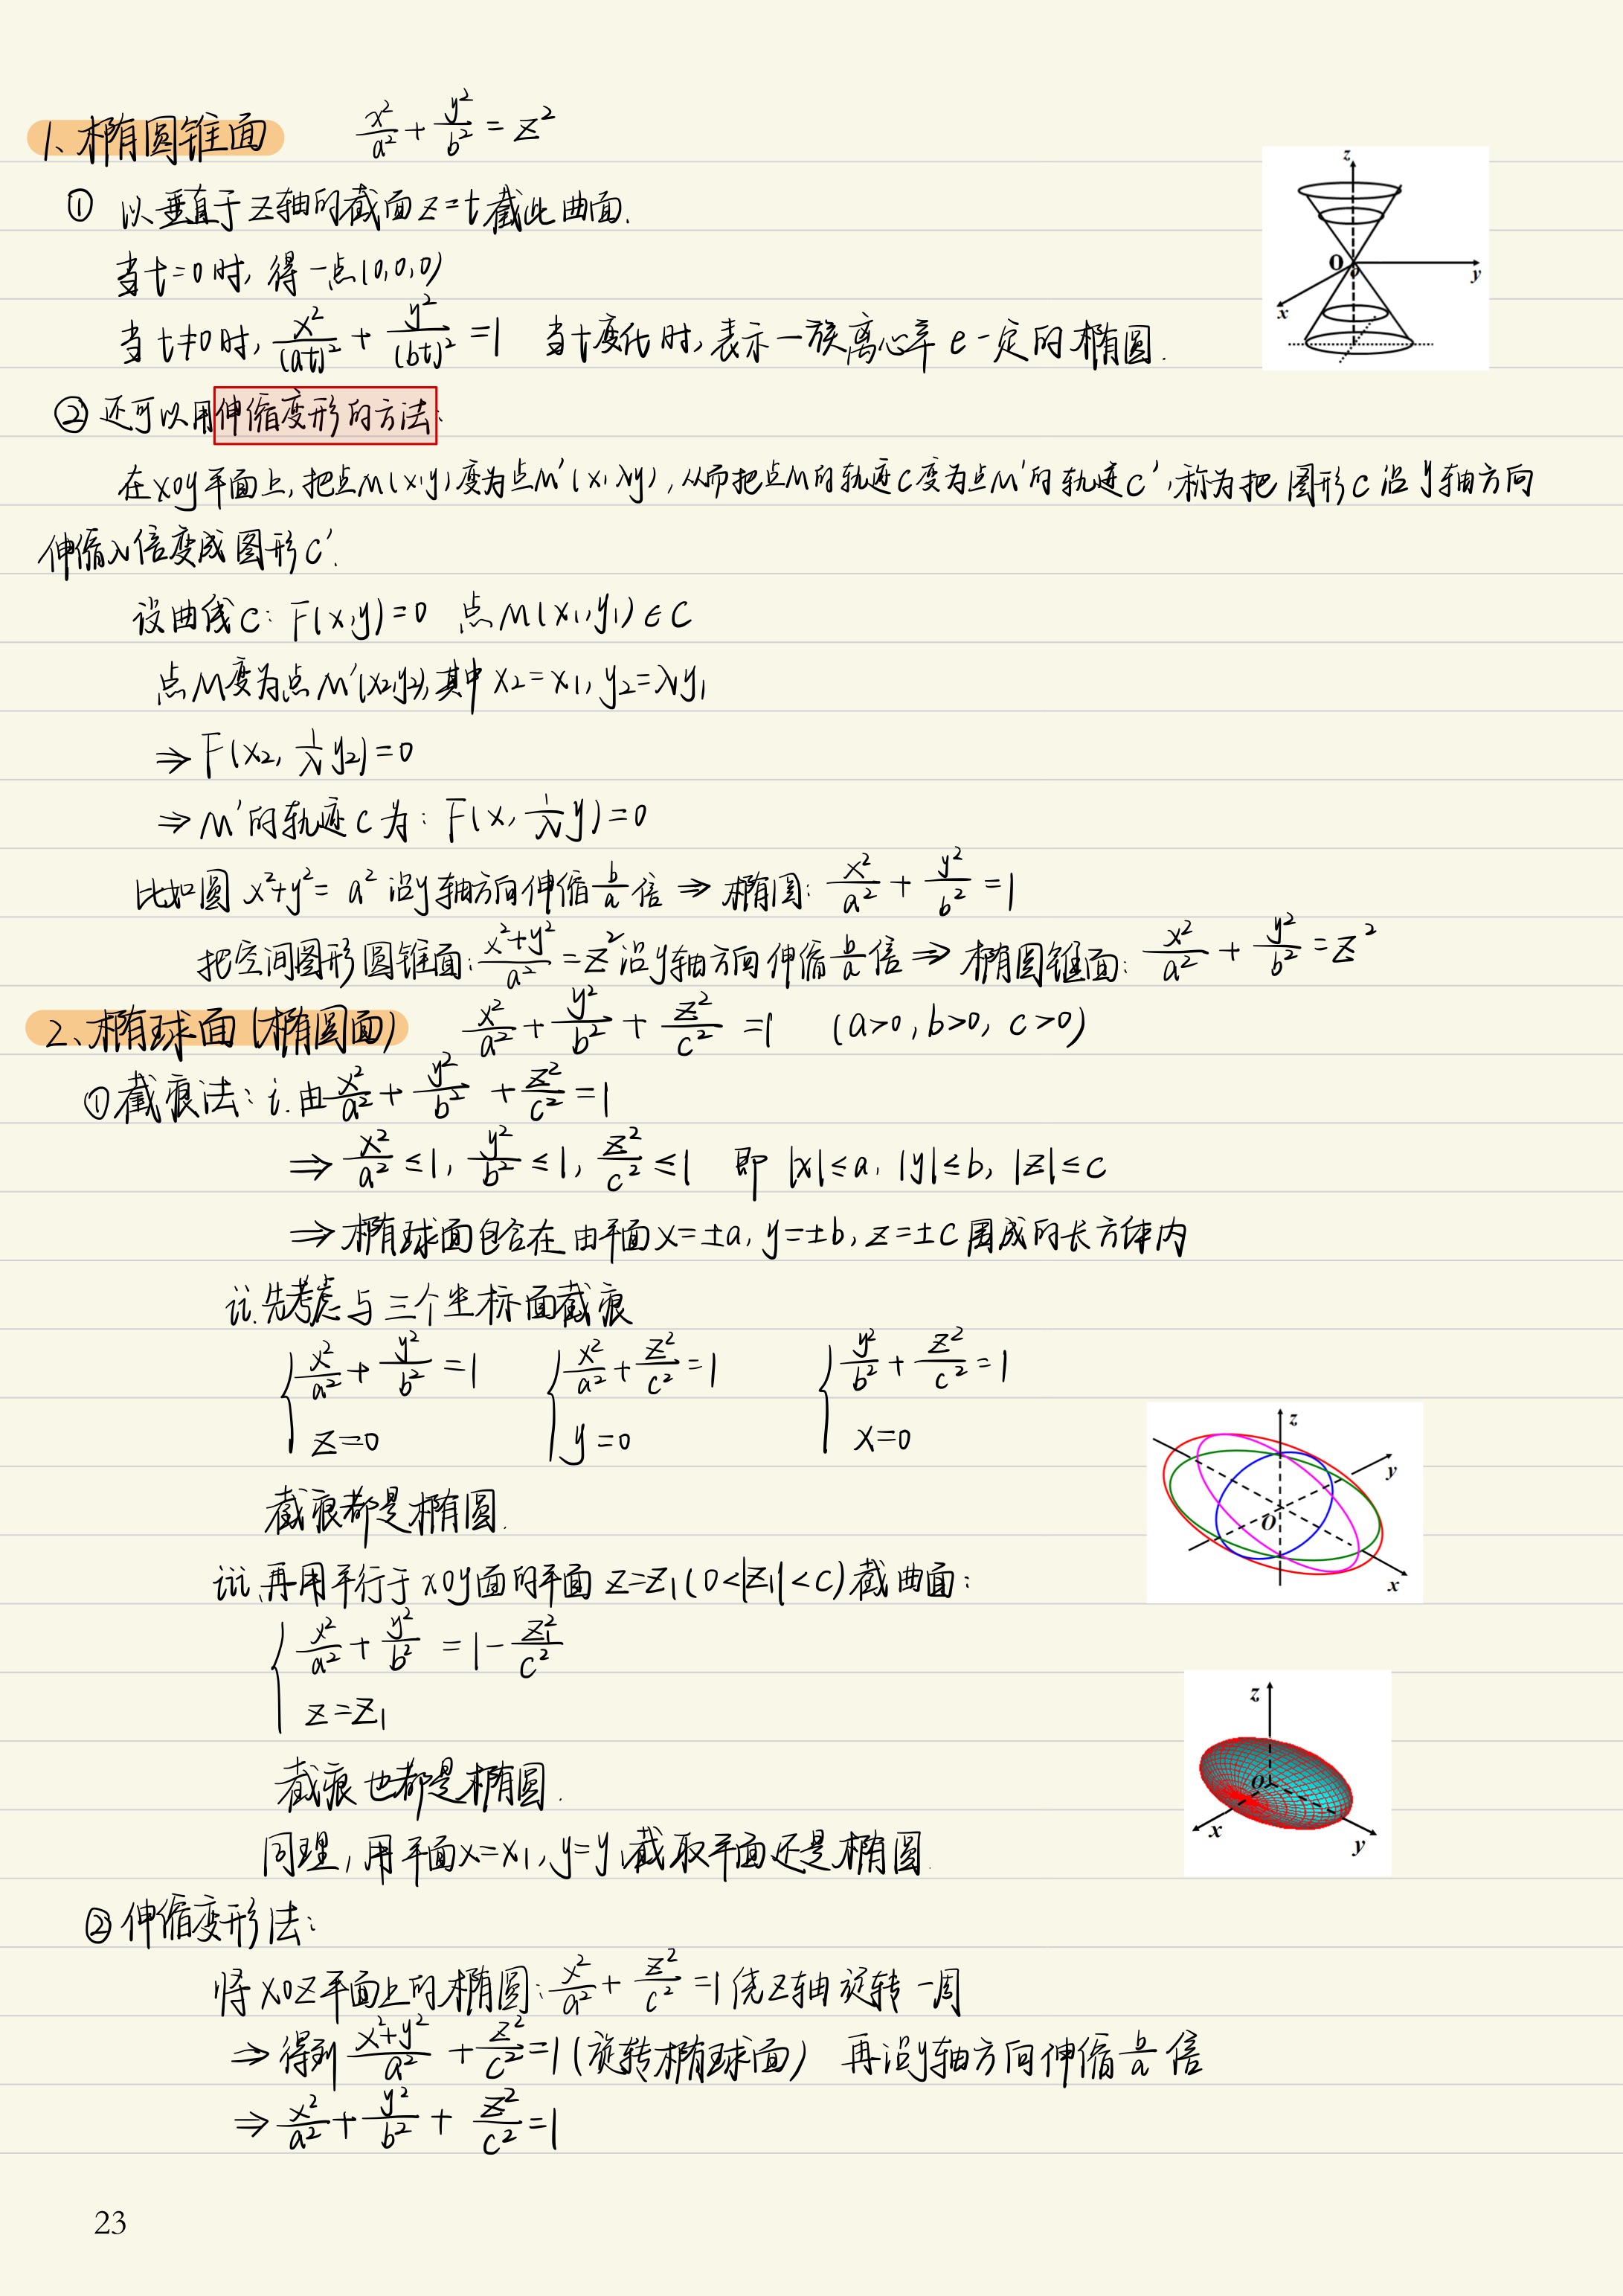 1、椭圆锥面 x²/a² + y²/b² = z²
① 以垂直于z轴的截面z=t截此曲面.
当t=0时, 得一点(0,0,0)
当t≠0时, x²/(at)² + y²/(bt)² =1 当t变化时, 表示一族离心率e一定的椭圆.
z
O
y
x
② 还可以用伸缩变形的方法:
在xoy平面上, 把点M(x,y)变为点M'(x,λy), 从而把点M的轨迹C变为点M'的轨迹C', 称为把图形C沿y轴方向
伸缩λ倍变成图形C'.
设曲线C: F(x,y)=0 点M(x₁,y₁)∈C
点M变为点M'(x₂,y₂), 其中x₂=x₁, y₂=λy₁
⇒ F(x₂, 1/λ y₂)=0
⇒ M'的轨迹C为: F(x, 1/λ y)=0
比如圆 x²+y²= a² 沿y轴方向伸缩b/a倍 ⇒ 椭圆: x²/a² + y²/b² =1
把空间图形圆锥面: (x²+y²)/a² =z² 沿y轴方向伸缩b/a倍 ⇒ 椭圆锥面: x²/a² + y²/b² =z²
2、椭球面(椭圆面) x²/a² + y²/b² + z²/c² =1 (a>0, b>0, c>0)
①截痕法: i. 由x²/a² + y²/b² + z²/c² =1
⇒ x²/a² ≤1, y²/b² ≤1, z²/c² ≤1 即 |x|≤a, |y|≤b, |z|≤c
⇒ 椭球面包含在由平面x=±a, y=±b, z=±c围成的长方体内
ii. 先考虑与三个坐标面截痕
{ x²/a² + y²/b² =1 { x²/a² + z²/c² =1 { y²/b² + z²/c² =1
z=0 y=0 x=0
z
y
O
x
截痕都是椭圆.
iii. 再用平行于xoy面的平面 z=z₁(0<|z₁|<c)截曲面:
{ x²/a² + y²/b² =1- z₁²/c²
z=z₁
z
O
x
y
截痕也都是椭圆.
同理, 用平面x=x₁, y=y₁截取平面还是椭圆.
②伸缩变形法:
将xoz平面上的椭圆: x²/a² + z²/c² =1绕z轴旋转一周
⇒ 得到 (x²+y²)/a² + z²/c² =1(旋转椭球面) 再沿y轴方向伸缩b/a倍
⇒ x²/a² + y²/b² + z²/c² =1
23